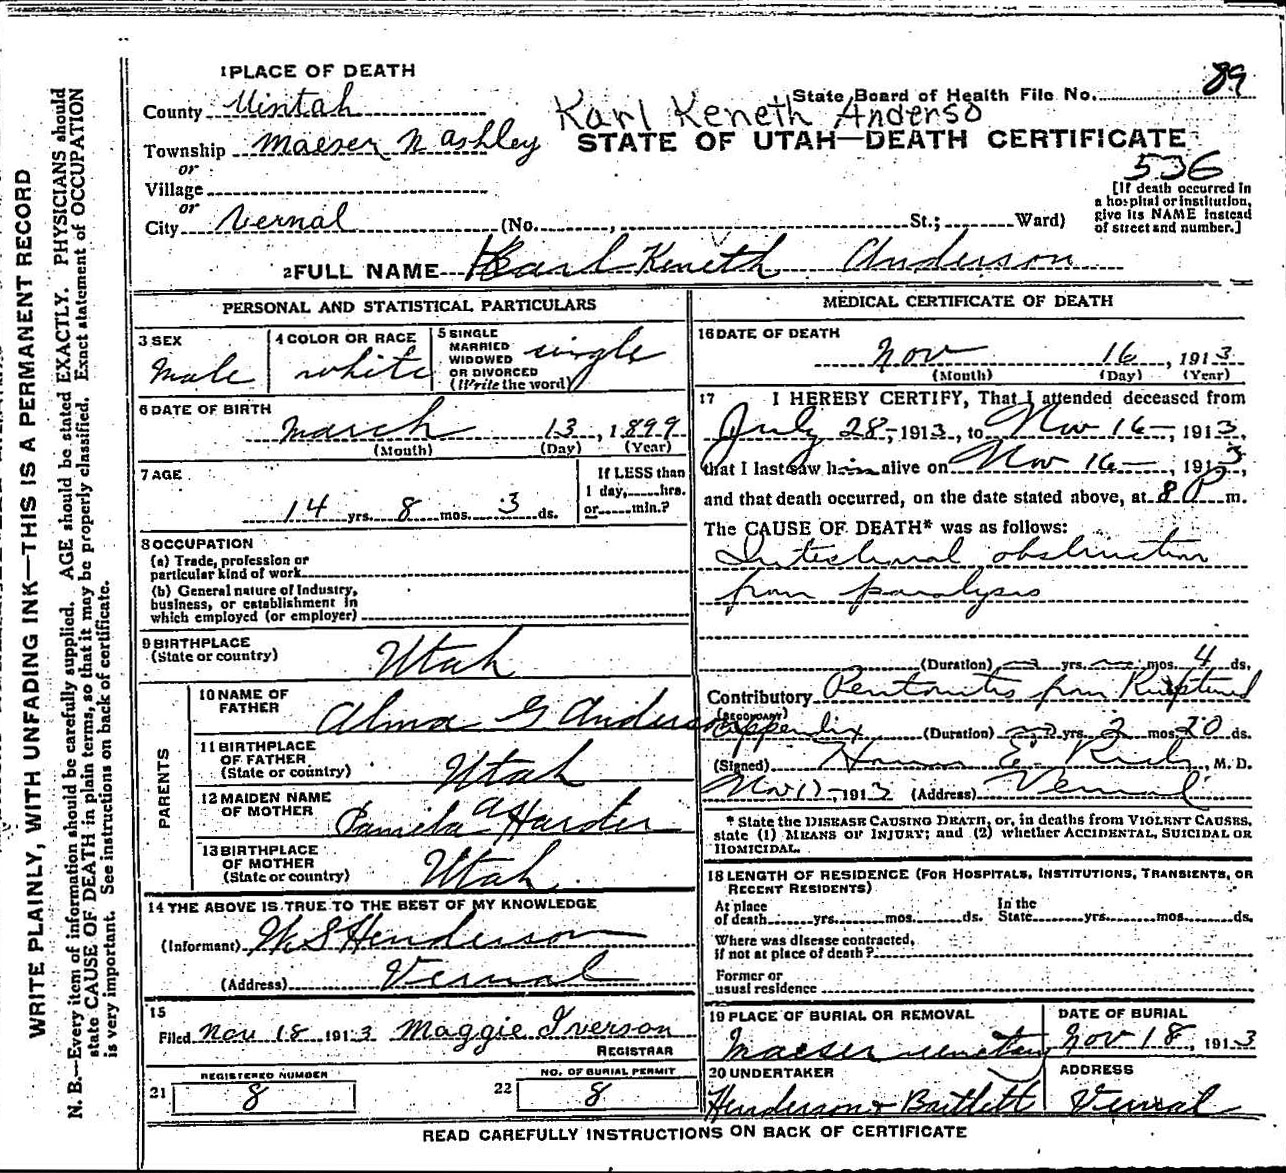 WRITE PLAINLY, WITH UNFADING INK—THIS IS A PERMANENT RECORD
N. B.—Every item of information should be carefully supplied. AGE should be stated EXACTLY. PHYSICIANS should
state CAUSE OF DEATH in plain terms, so that it may be properly classified. Exact statement of OCCUPATION
is very important. See instructions on back of certificate.
1 PLACE OF DEATH
State Board of Health File No. 89
County Uintah
Karl Keneth Anderso
STATE OF UTAH—DEATH CERTIFICATE
Township Maeser N Ashley
536
or
Village
or
City Vernal (No. , St.; Ward)
[If death occurred in
a hospital or institution,
give its NAME instead
of street and number.]
2 FULL NAME Karl Keneth Anderson
PERSONAL AND STATISTICAL PARTICULARS
3 SEX
Male
4 COLOR OR RACE
white
5 SINGLE
MARRIED
WIDOWED
OR DIVORCED
(Write the word)
single
6 DATE OF BIRTH
March 13, 1899
(Month) (Day) (Year)
7 AGE
14 yrs. 8 mos. 3 ds.
If LESS than
1 day, hrs.
or min.?
8 OCCUPATION
(a) Trade, profession or
particular kind of work
(b) General nature of Industry,
business, or establishment in
which employed (or employer)
9 BIRTHPLACE
(State or country)
Utah
PARENTS
10 NAME OF
FATHER
Alma G Anderson
11 BIRTHPLACE
OF FATHER
(State or country)
Utah
12 MAIDEN NAME
OF MOTHER
Pamela A Harder
13 BIRTHPLACE
OF MOTHER
(State or country)
Utah
14 THE ABOVE IS TRUE TO THE BEST OF MY KNOWLEDGE
(Informant) W S Henderson
(Address) Vernal
15
Filed Nov 18 1913 Maggie Iverson
REGISTRAR
21
REGISTERED NUMBER
8
22
NO. OF BURIAL PERMIT
8
MEDICAL CERTIFICATE OF DEATH
16 DATE OF DEATH
Nov 16, 1913
(Month) (Day) (Year)
17 I HEREBY CERTIFY, That I attended deceased from
July 28, 1913, to Nov 16—, 1913,
that I last saw him alive on Nov 16—, 1913,
and that death occurred, on the date stated above, at 8 P m.
The CAUSE OF DEATH* was as follows:
Intestinal obstruction
from paralysis
(Duration) — yrs. — mos. 4 ds.
Contributory Peritonitis from Ruptured
(SECONDARY)
Appendix (Duration) — yrs. 2 mos. 20 ds.
(Signed) , M. D.
Nov 17, 1913 (Address) Vernal
* State the DISEASE CAUSING DEATH, or, in deaths from VIOLENT CAUSES,
state (1) MEANS OF INJURY; and (2) whether ACCIDENTAL, SUICIDAL OR
HOMICIDAL.
18 LENGTH OF RESIDENCE (FOR HOSPITALS, INSTITUTIONS, TRANSIENTS, OR
RECENT RESIDENTS)
At place
of death yrs. mos. ds.
In the
State yrs. mos. ds.
Where was disease contracted,
if not at place of death?
Former or
usual residence
19 PLACE OF BURIAL OR REMOVAL
Maeser cemetary
DATE OF BURIAL
Nov 18, 1913
20 UNDERTAKER
Henderson & Bartlett
ADDRESS
Vernal
READ CAREFULLY INSTRUCTIONS ON BACK OF CERTIFICATE